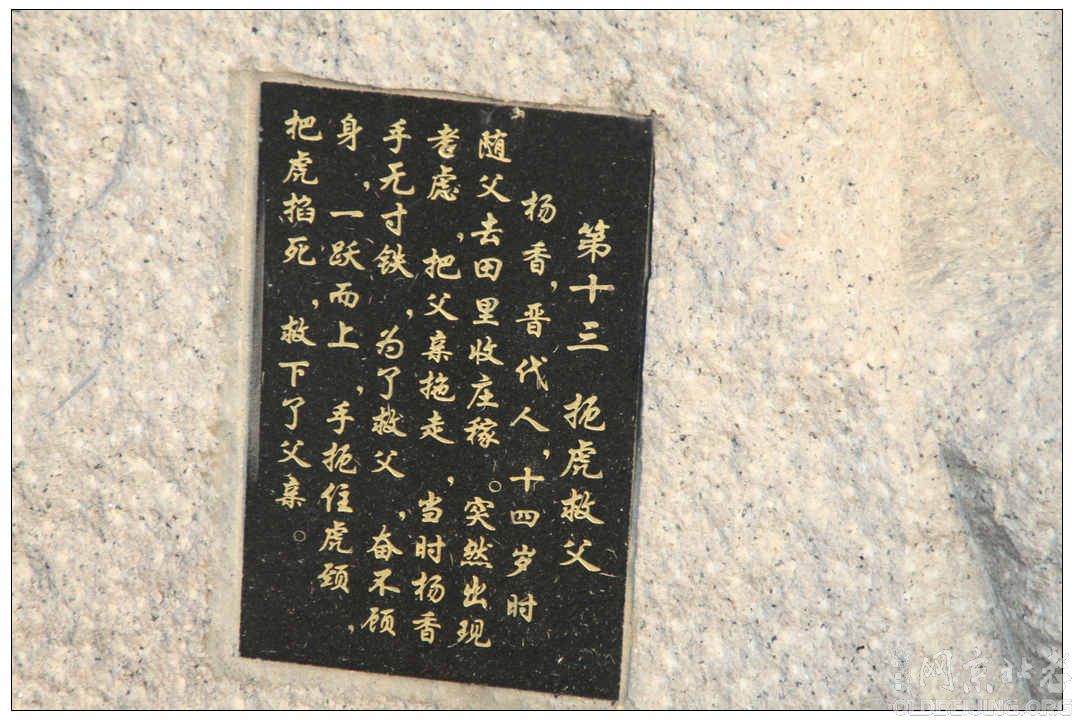 第十三 扼虎救父
杨香，晋代人，十四岁时
随父去田里收庄稼。突然出现
老虑，把父亲拖走，当时杨香
手无寸铁，为了救父，奋不顾
身，一跃而上，手扼住虎颈，
把虎掐死，救下了父亲。
网京北老
OLDBEIJING.ORG